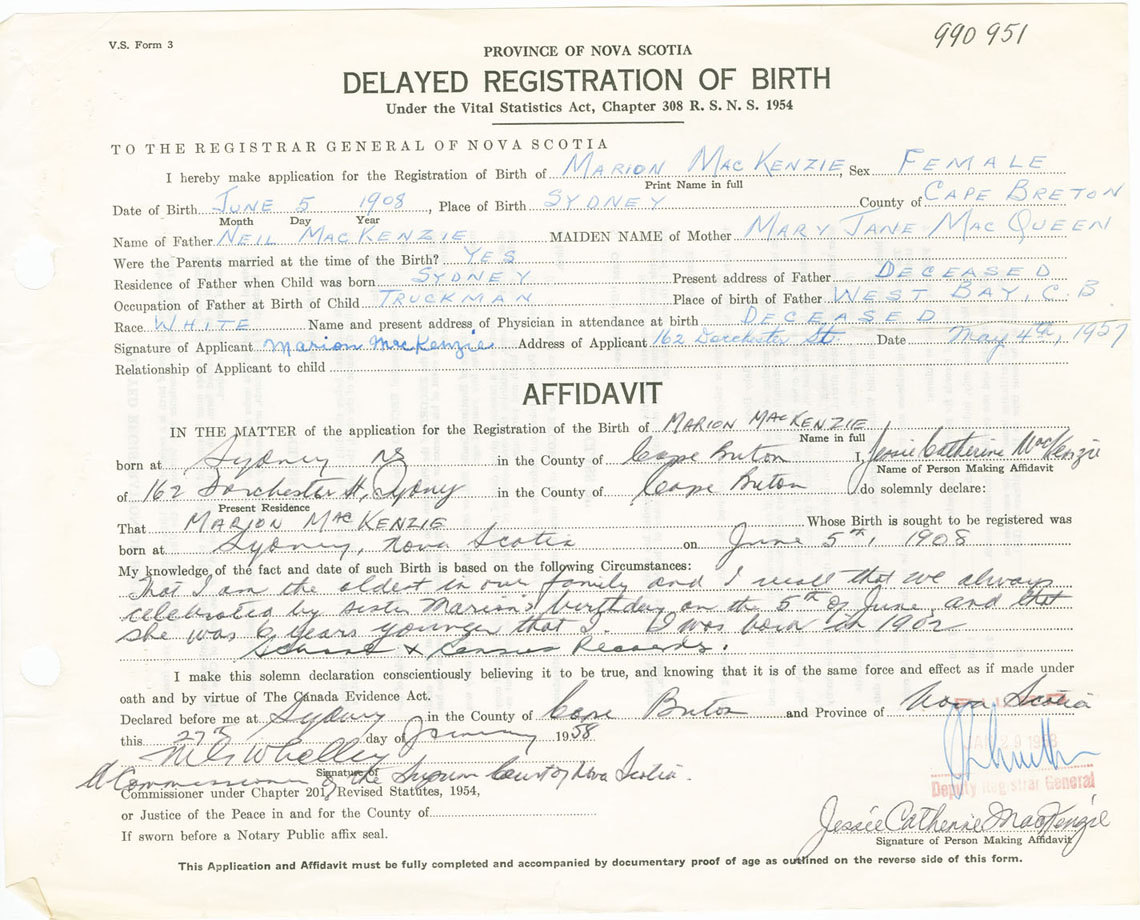 V.S. Form 3
990 951
PROVINCE OF NOVA SCOTIA
DELAYED REGISTRATION OF BIRTH
Under the Vital Statistics Act, Chapter 308 R. S. N. S. 1954
TO THE REGISTRAR GENERAL OF NOVA SCOTIA
I hereby make application for the Registration of Birth of MARION MACKENZIE, Sex FEMALE
Print Name in full
Date of Birth JUNE 5 1908, Place of Birth SYDNEY County of CAPE BRETON
Month Day Year
Name of Father NEIL MACKENZIE MAIDEN NAME of Mother MARY JANE MACQUEEN
Were the Parents married at the time of the Birth? YES
Residence of Father when Child was born SYDNEY Present address of Father DECEASED
Occupation of Father at Birth of Child TRUCKMAN Place of birth of Father WEST BAY, C.B.
Race WHITE Name and present address of Physician in attendance at birth DECEASED
Signature of Applicant Marion MacKenzie Address of Applicant 162 Dorchester St. Date May 4th, 1957
Relationship of Applicant to child
AFFIDAVIT
IN THE MATTER of the application for the Registration of the Birth of MARION MACKENZIE
Name in full
born at Sydney NS in the County of Cape Breton I, Jessie Catherine MacKenzie
Name of Person Making Affidavit
of 162 Dorchester St, Sydney in the County of Cape Breton do solemnly declare:
Present Residence
That MARION MACKENZIE Whose Birth is sought to be registered was
born at Sydney, Nova Scotia on June 5th, 1908
My knowledge of the fact and date of such Birth is based on the following Circumstances:
That I am the oldest in our family and I recall that we always
celebrated by sister Marion's birthday on the 5th of June, and that
she was 6 years younger that I. I was born in 1902
School & Census Records.
I make this solemn declaration conscientiously believing it to be true, and knowing that it is of the same force and effect as if made under
oath and by virtue of The Canada Evidence Act.
Declared before me at Sydney in the County of Cape Breton and Province of Nova Scotia
this 27th day of January 1958
Signature of
A Commissioner of the Supreme Court of Nova Scotia.
Commissioner under Chapter 201, Revised Statutes, 1954,
Deputy Registrar General
or Justice of the Peace in and for the County of
Jessie Catherine MacKenzie
Signature of Person Making Affidavit
If sworn before a Notary Public affix seal.
This Application and Affidavit must be fully completed and accompanied by documentary proof of age as outlined on the reverse side of this form.